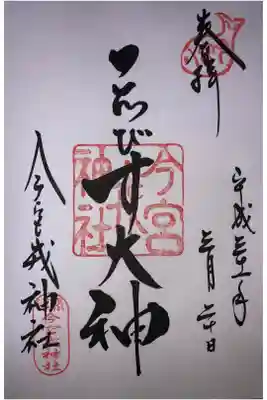 奉拝
平成三十一年三月二十日
ゑびす大神
今宮
神社
今宮戎神社